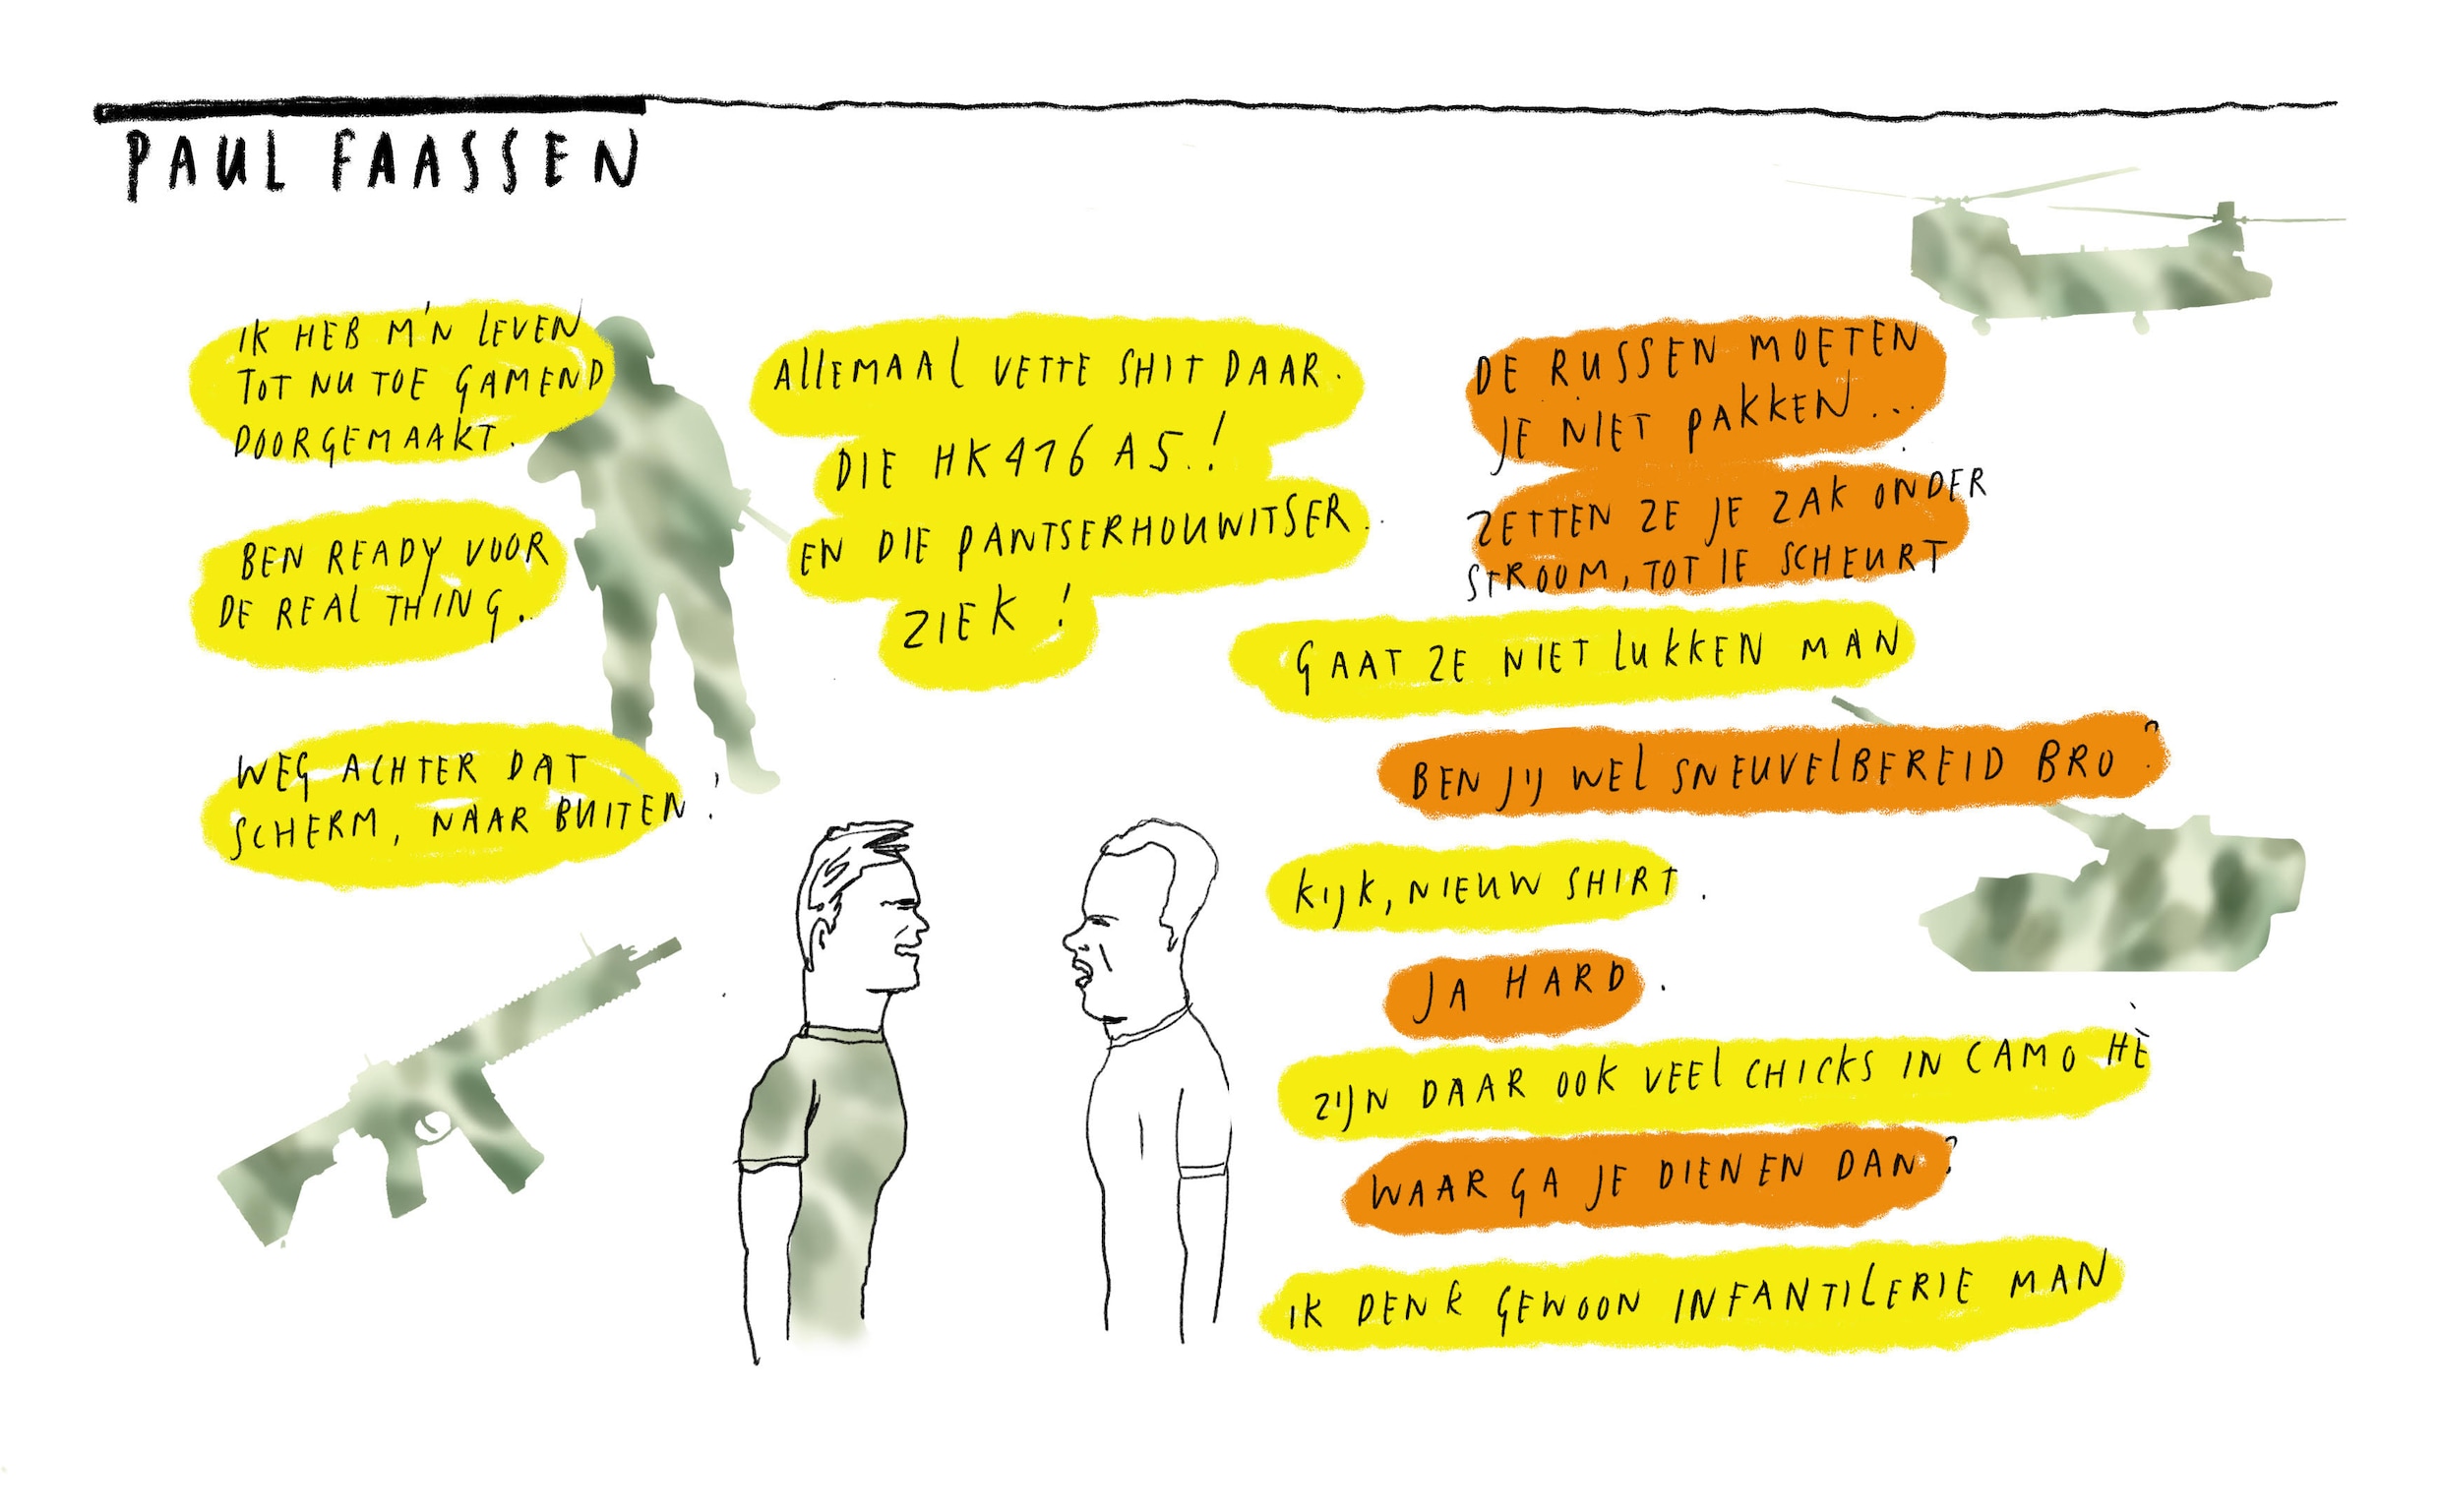 PAUL FAASSEN
IK HEB M'N LEVEN
TOT NU TOE GAMEND
DOORGEMAAKT.
BEN READY VOOR
DE REAL THING.
WEG ACHTER DAT
SCHERM, NAAR BUITEN!
ALLEMAAL VETTE SHIT DAAR.
DIE HK416 A5.!
EN DIE PANTSERHOUWITSER.
ZIEK!
DE RUSSEN MOETEN
JE NIET PAKKEN...
ZETTEN ZE JE ZAK ONDER
STROOM, TOT IE SCHEURT
GAAT ZE NIET LUKKEN MAN
BEN JIJ WEL SNEUVELBEREID BRO?
KIJK, NIEUW SHIRT.
JA HARD.
ZIJN DAAR OOK VEEL CHICKS IN CAMO HÈ
WAAR GA JE DIENEN DAN?
IK DENK GEWOON INFANTILERIE MAN